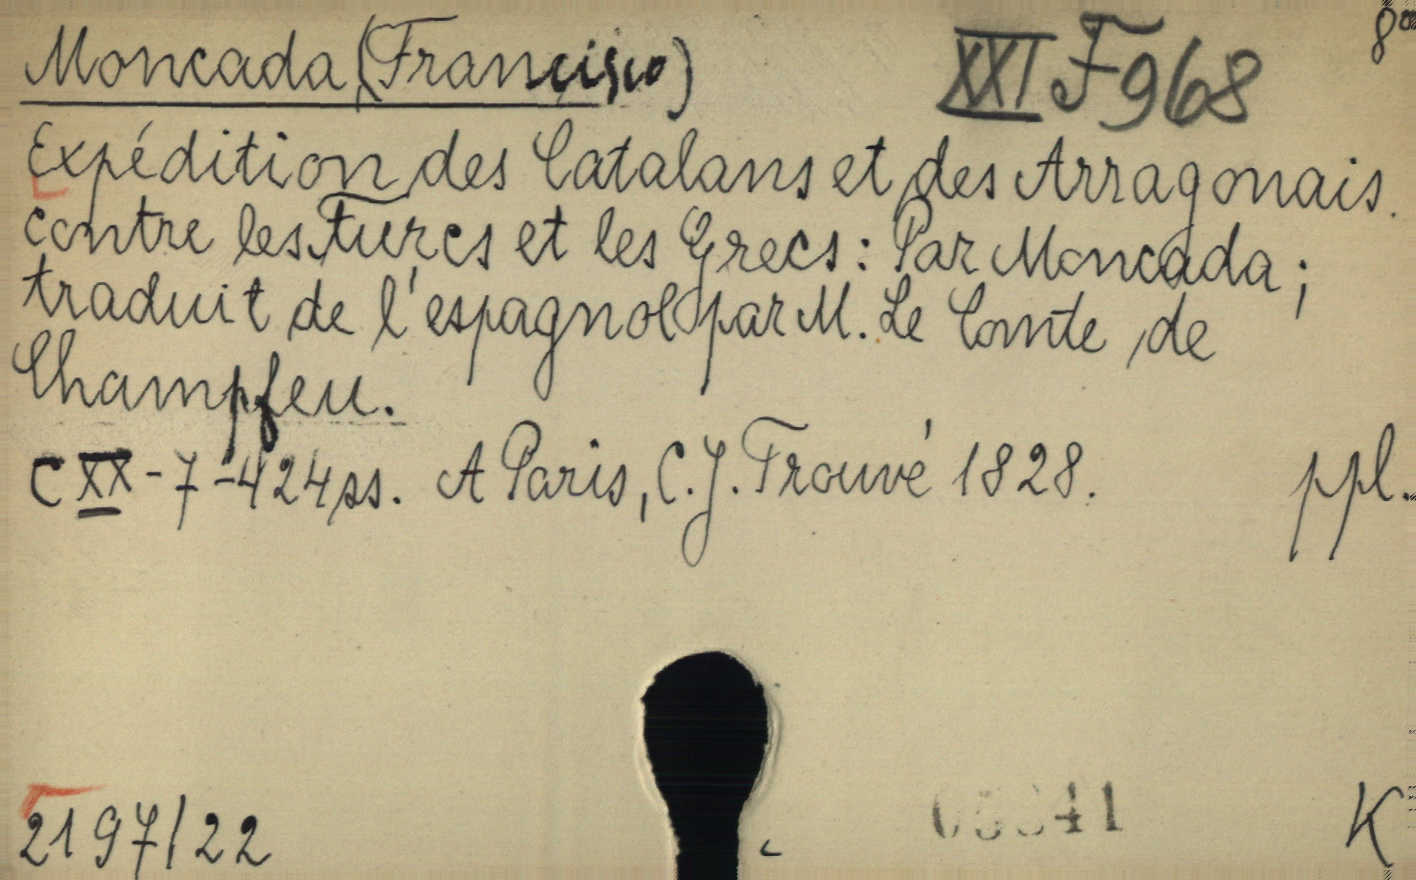 Moncada (Francisco) XXI F 968 8°
Expédition des Catalans et des Arragonais.
contre les Turcs et les Grecs: Par Moncada;
traduit de l'espagnol par M. Le Comte de
Champfeu.
C XX-7-424 ss. A Paris, C. J. Trouvé 1828. ppl.
41
2197/22 K